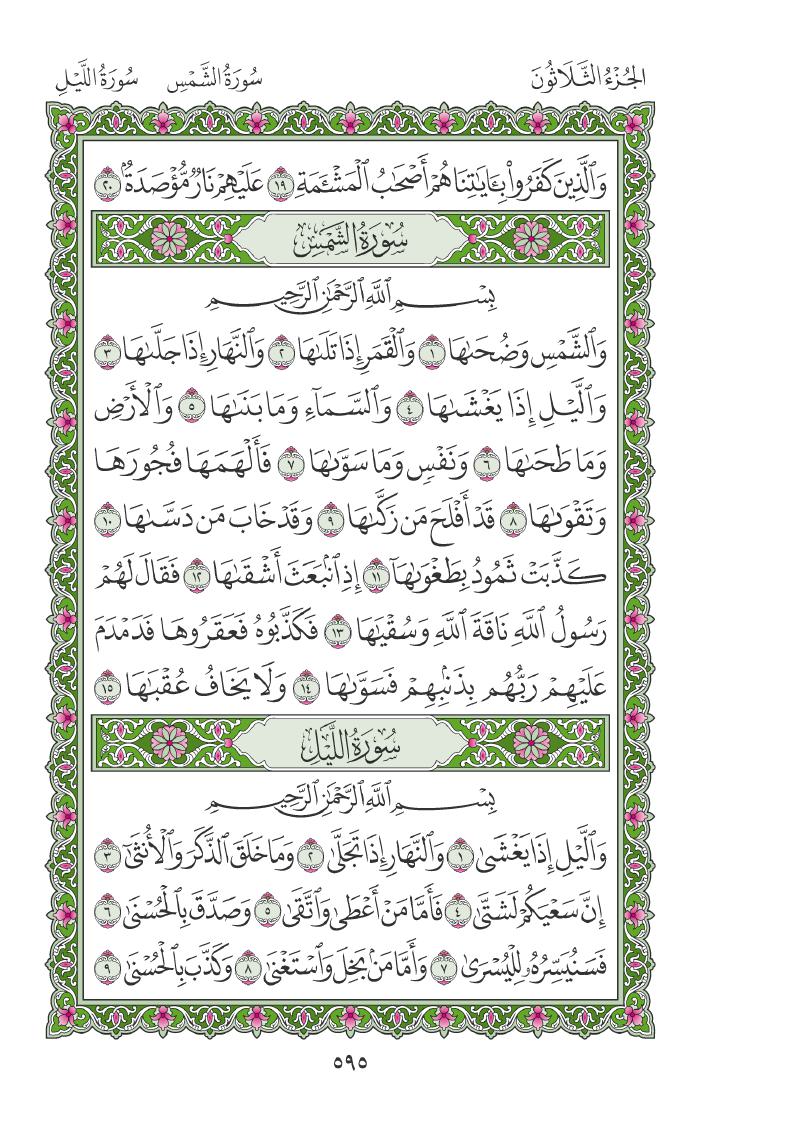 الجُزْءُ الثَّلَاثُونَ سُورَةُ الشَّمْسِ سُورَةُ اللَّيْلِ
وَٱلَّذِينَ كَفَرُوا۟ بِـَٔايَـٰتِنَا هُمْ أَصْحَـٰبُ ٱلْمَشْـَٔمَةِ ١٩ عَلَيْهِمْ نَارٌ مُّؤْصَدَةٌۢ ٢٠
سُورَةُ الشَّمْسِ
بِسْمِ ٱللَّهِ ٱلرَّحْمَـٰنِ ٱلرَّحِيمِ
وَٱلشَّمْسِ وَضُحَىٰهَا ١ وَٱلْقَمَرِ إِذَا تَلَىٰهَا ٢ وَٱلنَّهَارِ إِذَا جَلَّىٰهَا ٣
وَٱلَّيْلِ إِذَا يَغْشَىٰهَا ٤ وَٱلسَّمَآءِ وَمَا بَنَىٰهَا ٥ وَٱلْأَرْضِ
وَمَا طَحَىٰهَا ٦ وَنَفْسٍ وَمَا سَوَّىٰهَا ٧ فَأَلْهَمَهَا فُجُورَهَا
وَتَقْوَىٰهَا ٨ قَدْ أَفْلَحَ مَن زَكَّىٰهَا ٩ وَقَدْ خَابَ مَن دَسَّىٰهَا ١٠
كَذَّبَتْ ثَمُودُ بِطَغْوَىٰهَآ ١١ إِذِ ٱنۢبَعَثَ أَشْقَىٰهَا ١٢ فَقَالَ لَهُمْ
رَسُولُ ٱللَّهِ نَاقَةَ ٱللَّهِ وَسُقْيَـٰهَا ١٣ فَكَذَّبُوهُ فَعَقَرُوهَا فَدَمْدَمَ
عَلَيْهِمْ رَبُّهُم بِذَنۢبِهِمْ فَسَوَّىٰهَا ١٤ وَلَا يَخَافُ عُقْبَـٰهَا ١٥
سُورَةُ اللَّيْلِ
بِسْمِ ٱللَّهِ ٱلرَّحْمَـٰنِ ٱلرَّحِيمِ
وَٱلَّيْلِ إِذَا يَغْشَىٰ ١ وَٱلنَّهَارِ إِذَا تَجَلَّىٰ ٢ وَمَا خَلَقَ ٱلذَّكَرَ وَٱلْأُنثَىٰٓ ٣
إِنَّ سَعْيَكُمْ لَشَتَّىٰ ٤ فَأَمَّا مَنْ أَعْطَىٰ وَٱتَّقَىٰ ٥ وَصَدَّقَ بِٱلْحُسْنَىٰ ٦
فَسَنُيَسِّرُهُۥ لِلْيُسْرَىٰ ٧ وَأَمَّا مَنۢ بَخِلَ وَٱسْتَغْنَىٰ ٨ وَكَذَّبَ بِٱلْحُسْنَىٰ ٩
٥٩٥